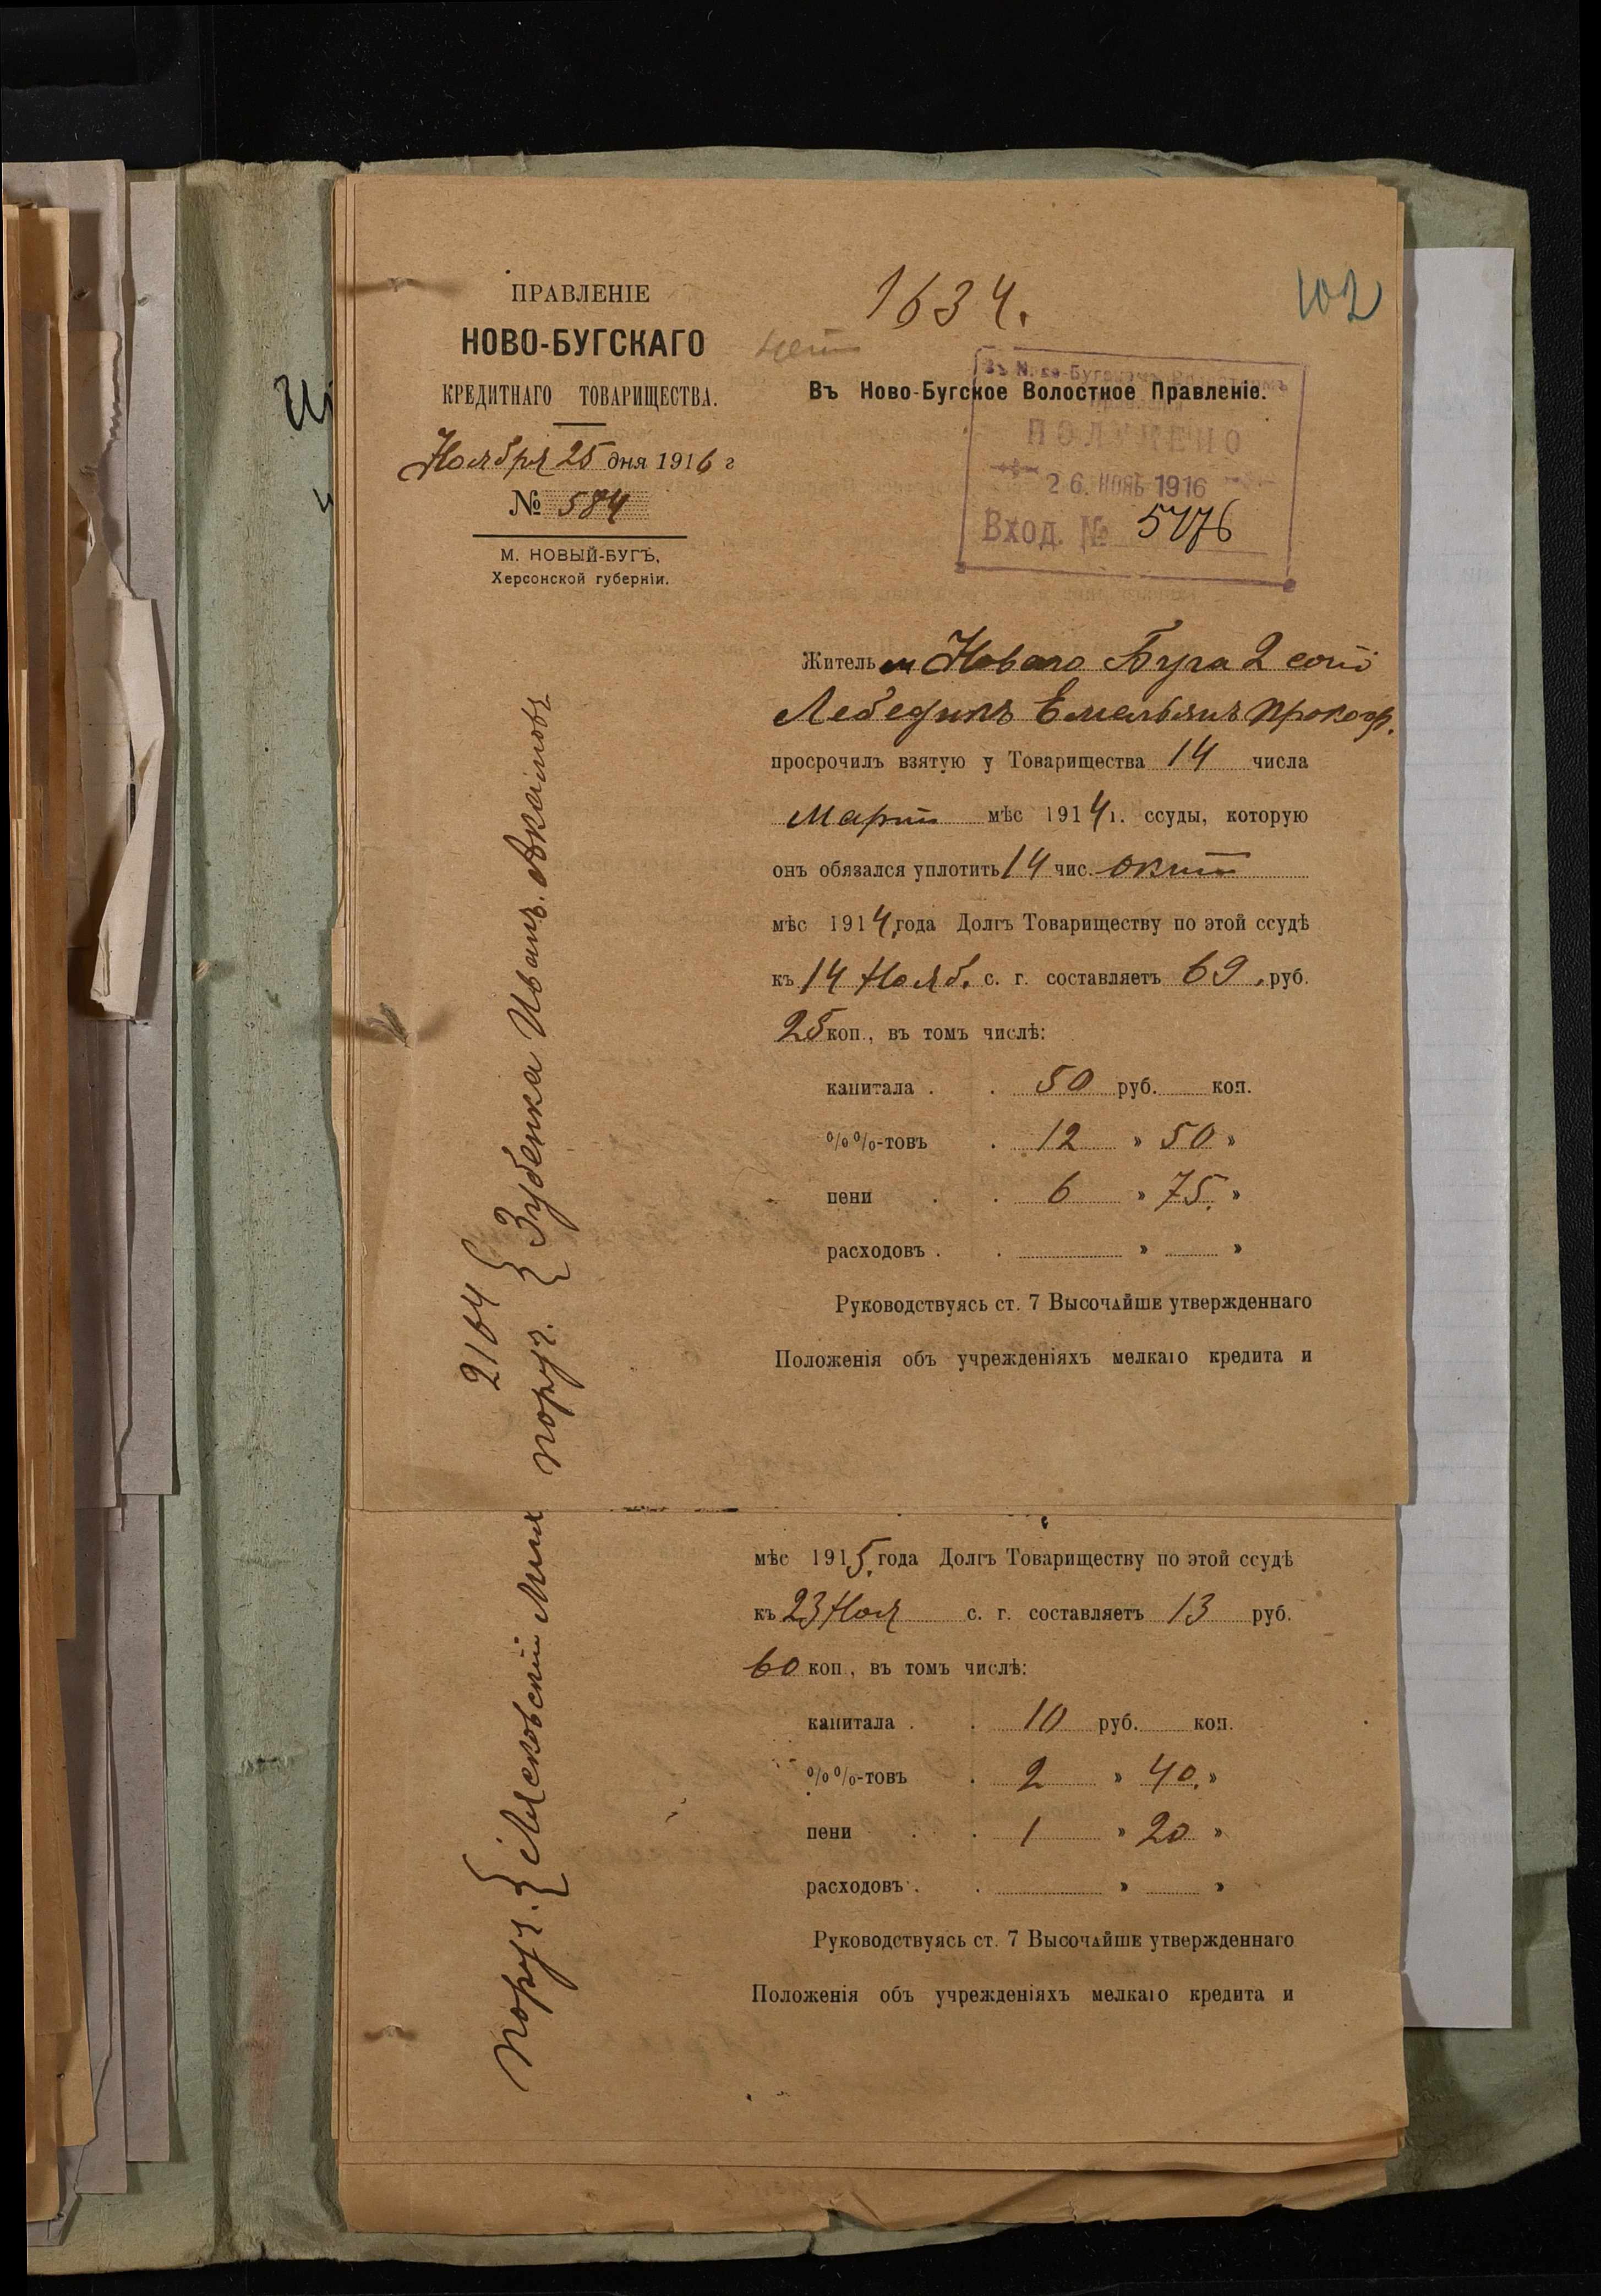 ПРАВЛЕНІЕ
НОВО-БУГСКАГО
КРЕДИТНАГО ТОВАРИЩЕСТВА.
Ноября 25 дня 1916 г
№ 584
М. НОВЫЙ-БУГЪ,
Херсонской губерніи.
1634.
102
Въ Ново-Бугское Волостное Правленіе.
ПОЛУЧЕНО
26. НОЯБ 1916
Вход. № 5176
Житель м Новаго Буга 2 сот
Лебедикъ Емельянъ Прокоф.
просрочилъ взятую у Товарищества 14 числа
Марта мѣс 1914 г. ссуды, которую
онъ обязался уплотить 14 чис. Окт
мѣс 1914 года Долгъ Товариществу по этой ссудѣ
къ 14 Нояб. с. г. составляетъ 69. руб.
25 коп., въ томъ числѣ:
капитала . . 50 руб. коп.
%%-товъ . 12 » 50 »
пени . . 6 » 75. »
расходовъ . . » »
Руководствуясь ст. 7 Высочайше утвержденнаго
Положенія объ учрежденіяхъ мелкаго кредита и
2164
поруч. { Зубенка Иванъ. Акимовъ
мѣс 1915. года Долгъ Товариществу по этой ссудѣ
къ 23 Ноя с. г. составляетъ 13 руб.
60 коп., въ томъ числѣ:
капитала . . 10 руб. коп.
%%-товъ . 2 » 40. »
пени . . 1 » 20 »
расходовъ . . » »
Руководствуясь ст. 7 Высочайше утвержденнаго
Положенія объ учрежденіяхъ мелкаго кредита и
поруч. {